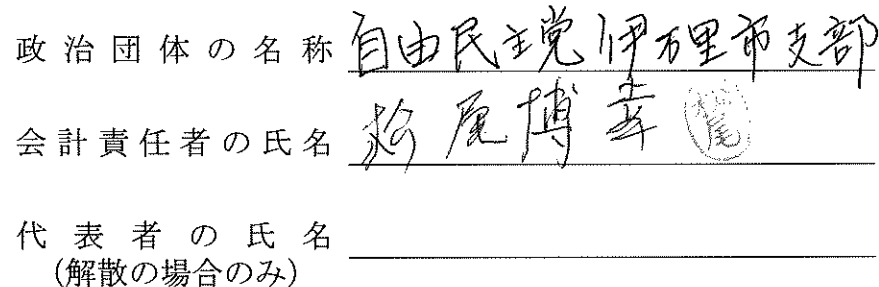 政治団体の名称 自由民主党伊万里市支部
会計責任者の氏名 松尾博幸 松尾
代表者の氏名
(解散の場合のみ)